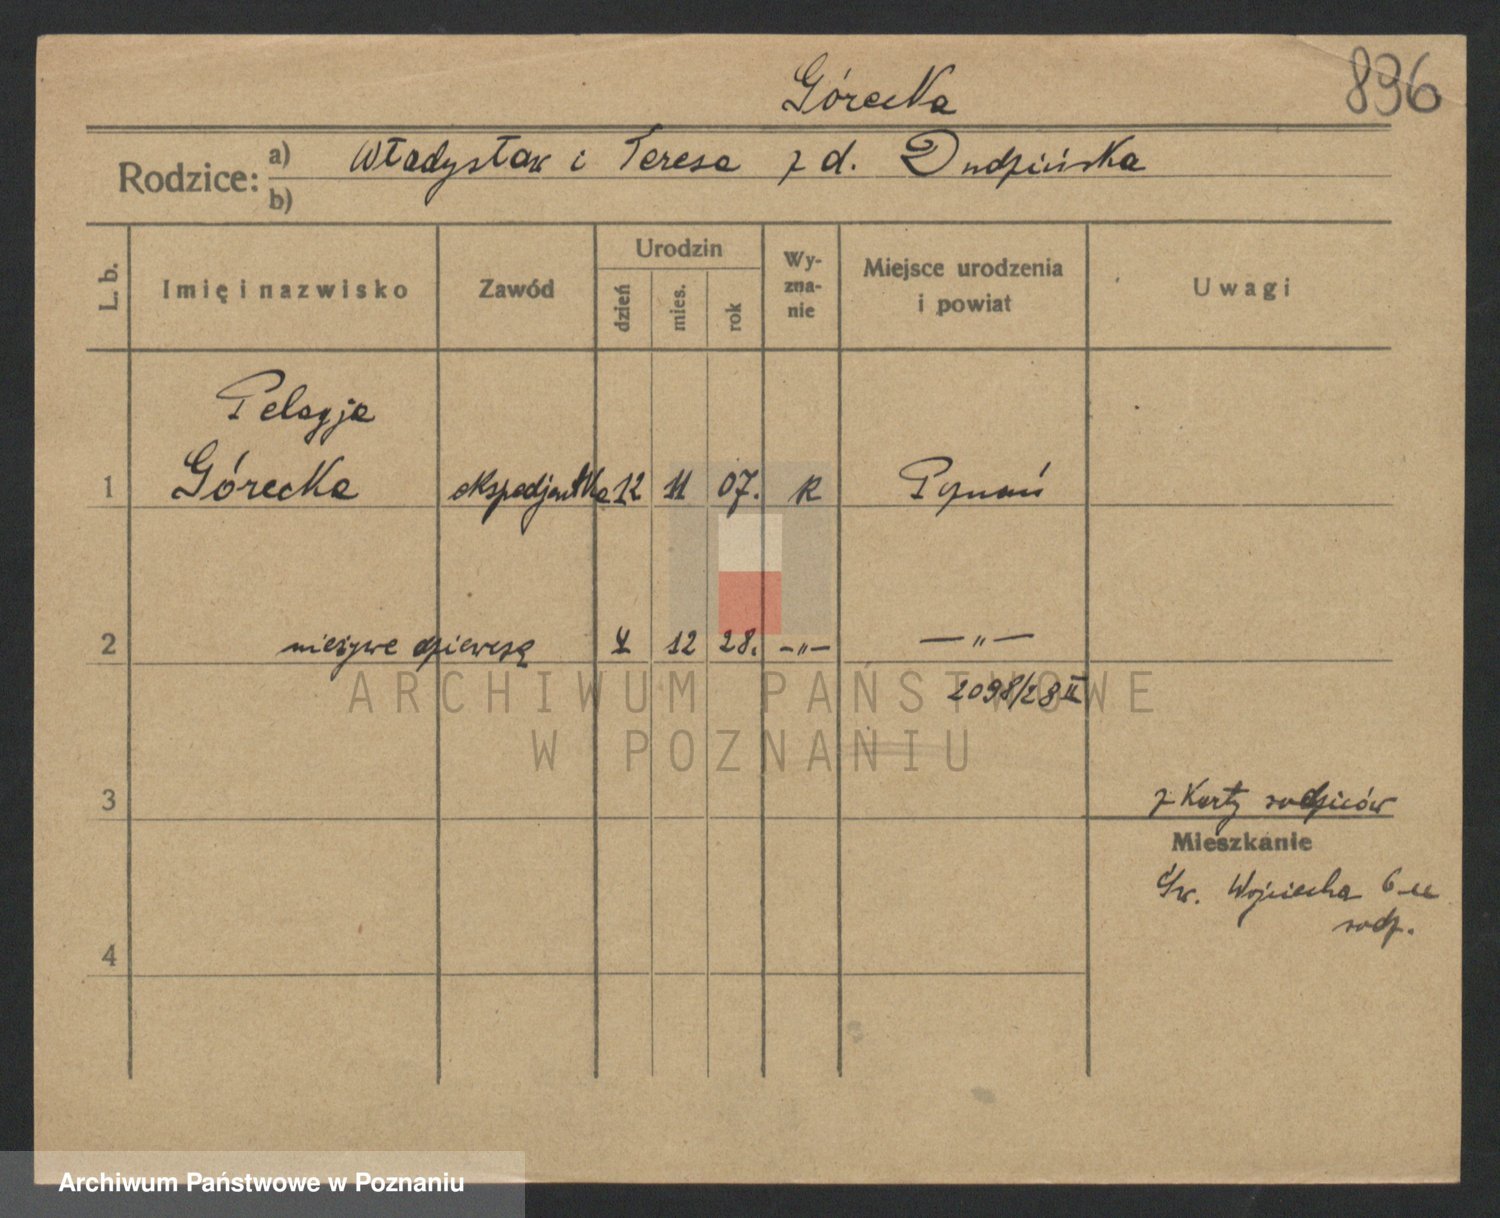 Górecka
836
Rodzice: a) Władysław i Teresa z d. Dudzińska
b)
L. b.
Imię i nazwisko
Zawód
Urodzin
dzień
mies.
rok
Wy-
zna-
nie
Miejsce urodzenia
i powiat
Uwagi
Pelagja
1 Górecka ekspedjentka 12 11 07. k Poznań
2 nieżywe dziewczę 4 12 28. -„- -„-
2098/28 II
3 z Karty rodziców
Mieszkanie
Św. Wojciecha 6
rodz.
4
ARCHIWUM PAŃSTWOWE
W POZNANIU
Archiwum Państwowe w Poznaniu